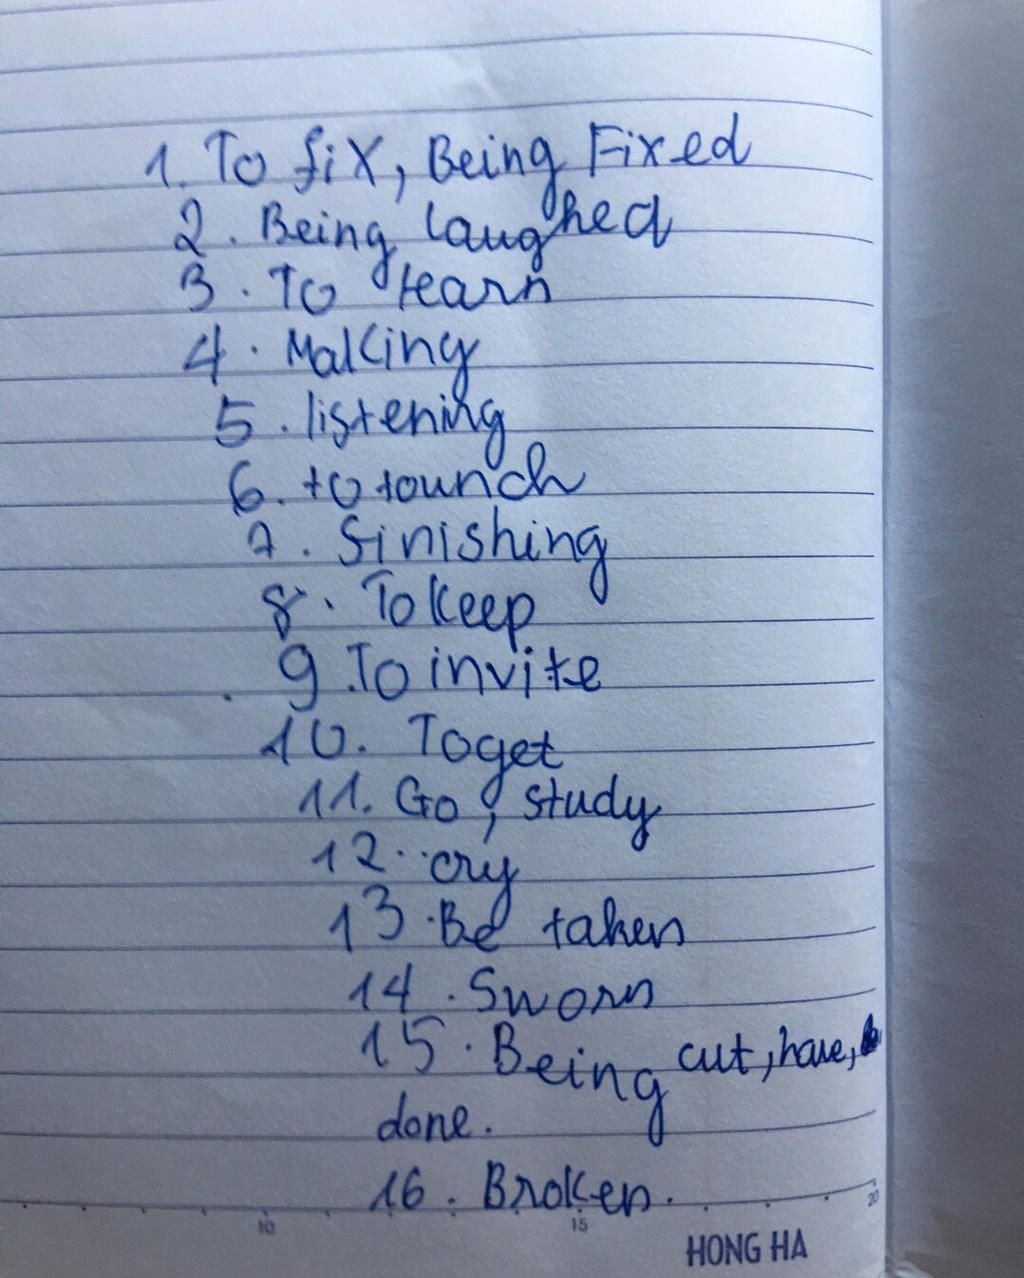 1. To fix, Being Fixed
2. Being laughed
3. To learn
4. Making
5. listening
6. to tounch
7. finishing
8. To keep
9. To invite
10. To get
11. Go, study
12. cry
13. Be taken
14. Sworn
15. Being cut, have,
done.
16. Broken.
10 15 20
HONG HA